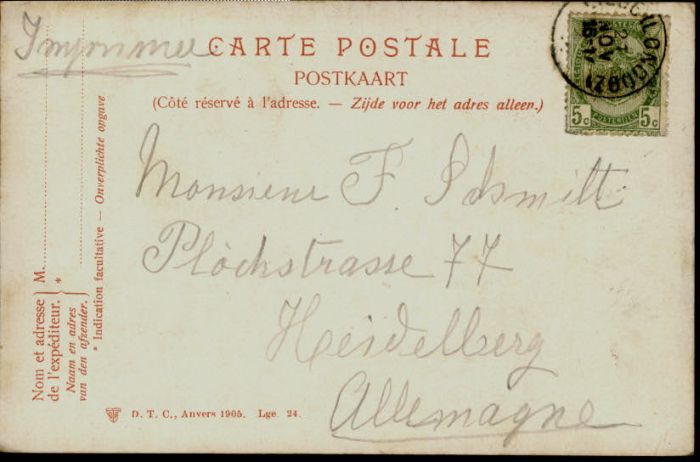 Imprimee
CARTE POSTALE
POSTKAART
(Côté réservé à l'adresse. — Zijde voor het adres alleen.)
27
NOV
5 c POSTERIJEN 5 c
Monsieur F. Schmitt
Plöckstrasse 77
Heidelberg
Allemagne
Nom et adresse
de l'expéditeur.
M.
Naam en adres
van den afzender.
*
* Indication facultative — Onverplichte opgave
D. T. C., Anvers 1905. Lge. 24.